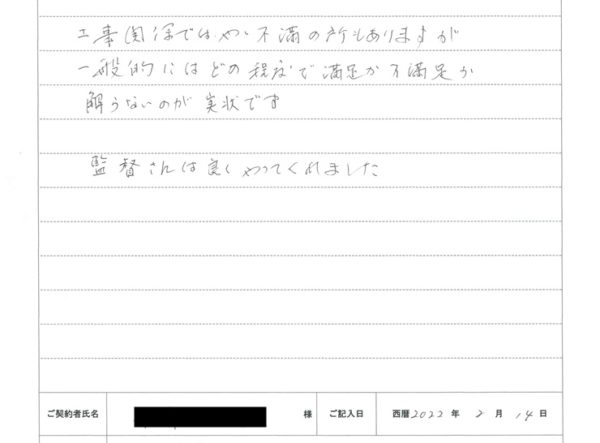 工事関係ではやゝ不満の所もありますが
一般的にはどの程度で満足か不満足か
解らないのが実状です
監督さんは良くやってくれました
ご契約者氏名 様 ご記入日 西暦2022年 2月 14日